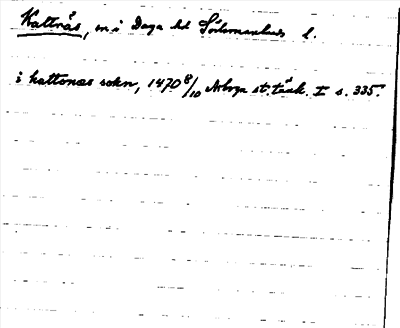 Kattnäs, sn i Daga hd Södermanlands l.
i kattonæs sokn, 1470 8/10 Arboga st. tänk. I s. 335.